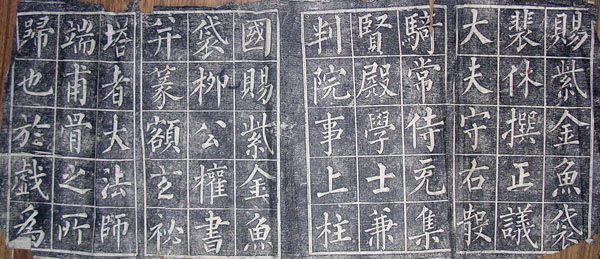 賜紫金魚袋
裴休撰正議
大夫守右散
騎常侍充集
賢殿學士兼
判院事上柱
國賜紫金魚
袋柳公權書
并篆額玄祕
塔者大法師
端甫骨之所
歸也於戲為